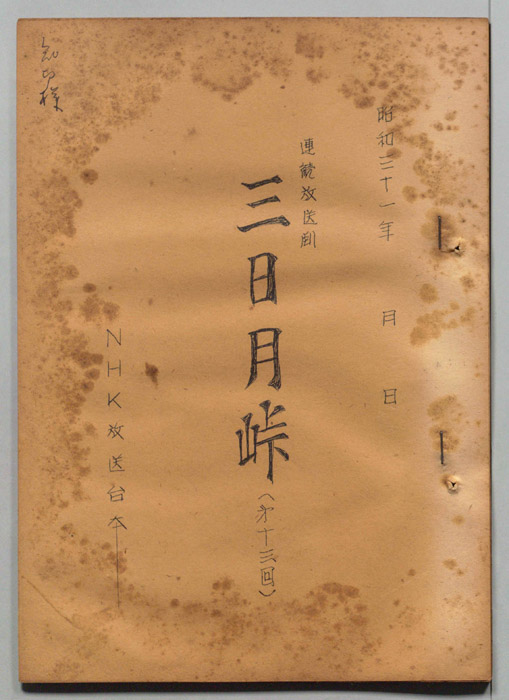 昭和三十一年　月　日
連続放送劇
三日月峠
(第十三回)
NHK放送台本
様